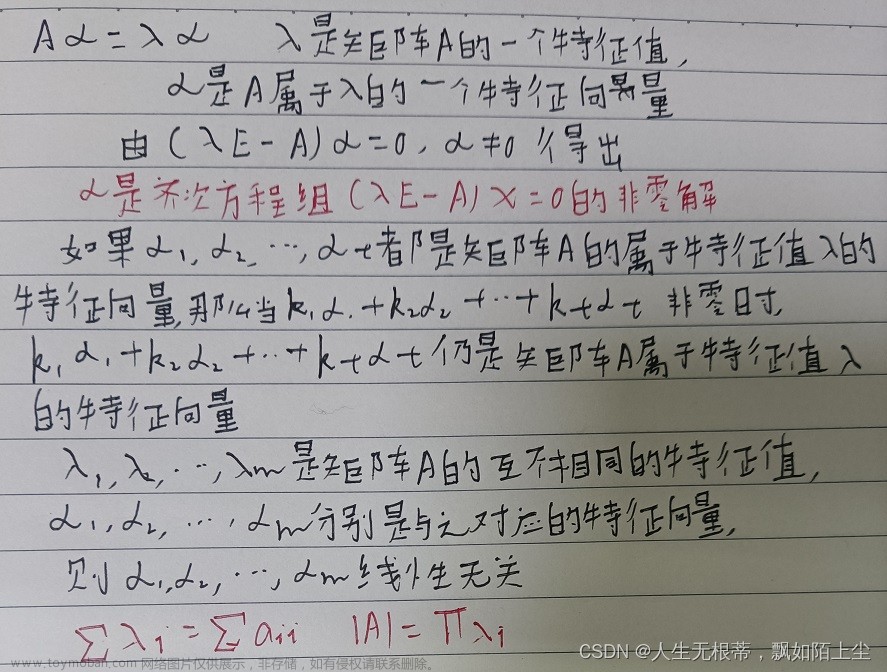 Aα=λα λ是矩阵A的一个特征值,
α是A属于λ的一个特征向量
由(λE-A)α=0,α≠0得出
α是齐次方程组(λE-A)X=0的非零解
如果α₁,α₂,…,αt都是矩阵A的属于特征值λ的
特征向量,那么当k₁α₁+k₂α₂+…+ktαt 非零时,
k₁α₁+k₂α₂+…+ktαt仍是矩阵A属于特征值λ
的特征向量
λ₁,λ₂,…,λm是矩阵A的互不相同的特征值,
α₁,α₂,…,αm分别是与之对应的特征向量,
则α₁,α₂,…,αm线性无关
∑λi=∑aii |A|=∏λi
CSDN @人生无根蒂，飘如陌上尘
www.toymoban.com 网络图片仅供展示，非存储，如有侵权请联系删除。